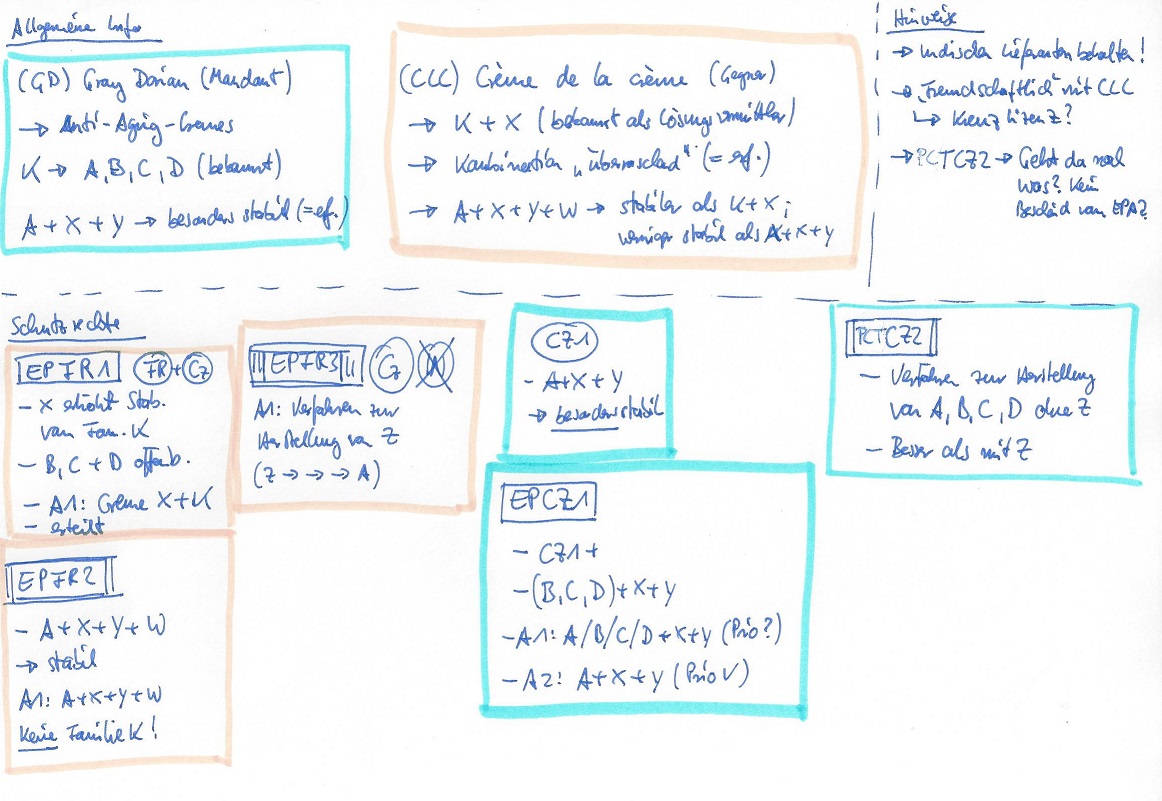 Allgemeine Info
(GD) Gray Dorian (Mandant)
→ Anti-Aging-Cremes
K → A, B, C, D (bekannt)
A + X + Y → besonders stabil (= erf.)
(CLC) Crème de la crème (Gegner)
→ K + X (bekannt als Lösungsvermittler)
→ Kombination „überraschend“ (= erf.)
→ A + X + Y + W → stabiler als K + X;
weniger stabil als A + X + Y
Hinweise
→ Indischen Lieferanten behalten!
→ „Freundschaftlich“ mit CLC
↳ Kreuzlizenz?
→ PCTCZ2 → Geht da noch
was? Kein
Bescheid vom EPA?
Schutzrechte
EPFR1 FR + CZ
- X erhöht Stab.
von Fam. K
- B, C + D offenb.
- A1: Creme X + K
- erteilt
EPFR3 CZ
A1: Verfahren zur
Herstellung von Z
(Z → → → A)
CZ1
- A + X + Y
→ besonders stabil
PCTCZ2
- Verfahren zur Herstellung
von A, B, C, D ohne Z
- Besser als mit Z
EPFR2
- A + X + Y + W
→ stabil
A1: A + X + Y + W
Keine Familie K!
EPCZ1
- CZ1 +
- (B, C, D) + X + Y
- A1: A/B/C/D + X + Y (Prio?)
- A2: A + X + Y (Prio √)